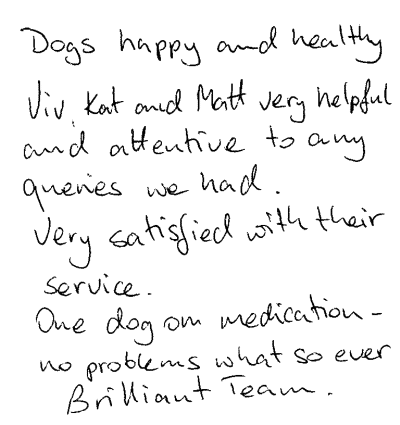 Dogs happy and healthy
Viv, Kat and Matt very helpful
and attentive to any
queries we had.
Very satisfied with their
service.
One dog on medication -
no problems what so ever
Brilliant Team.